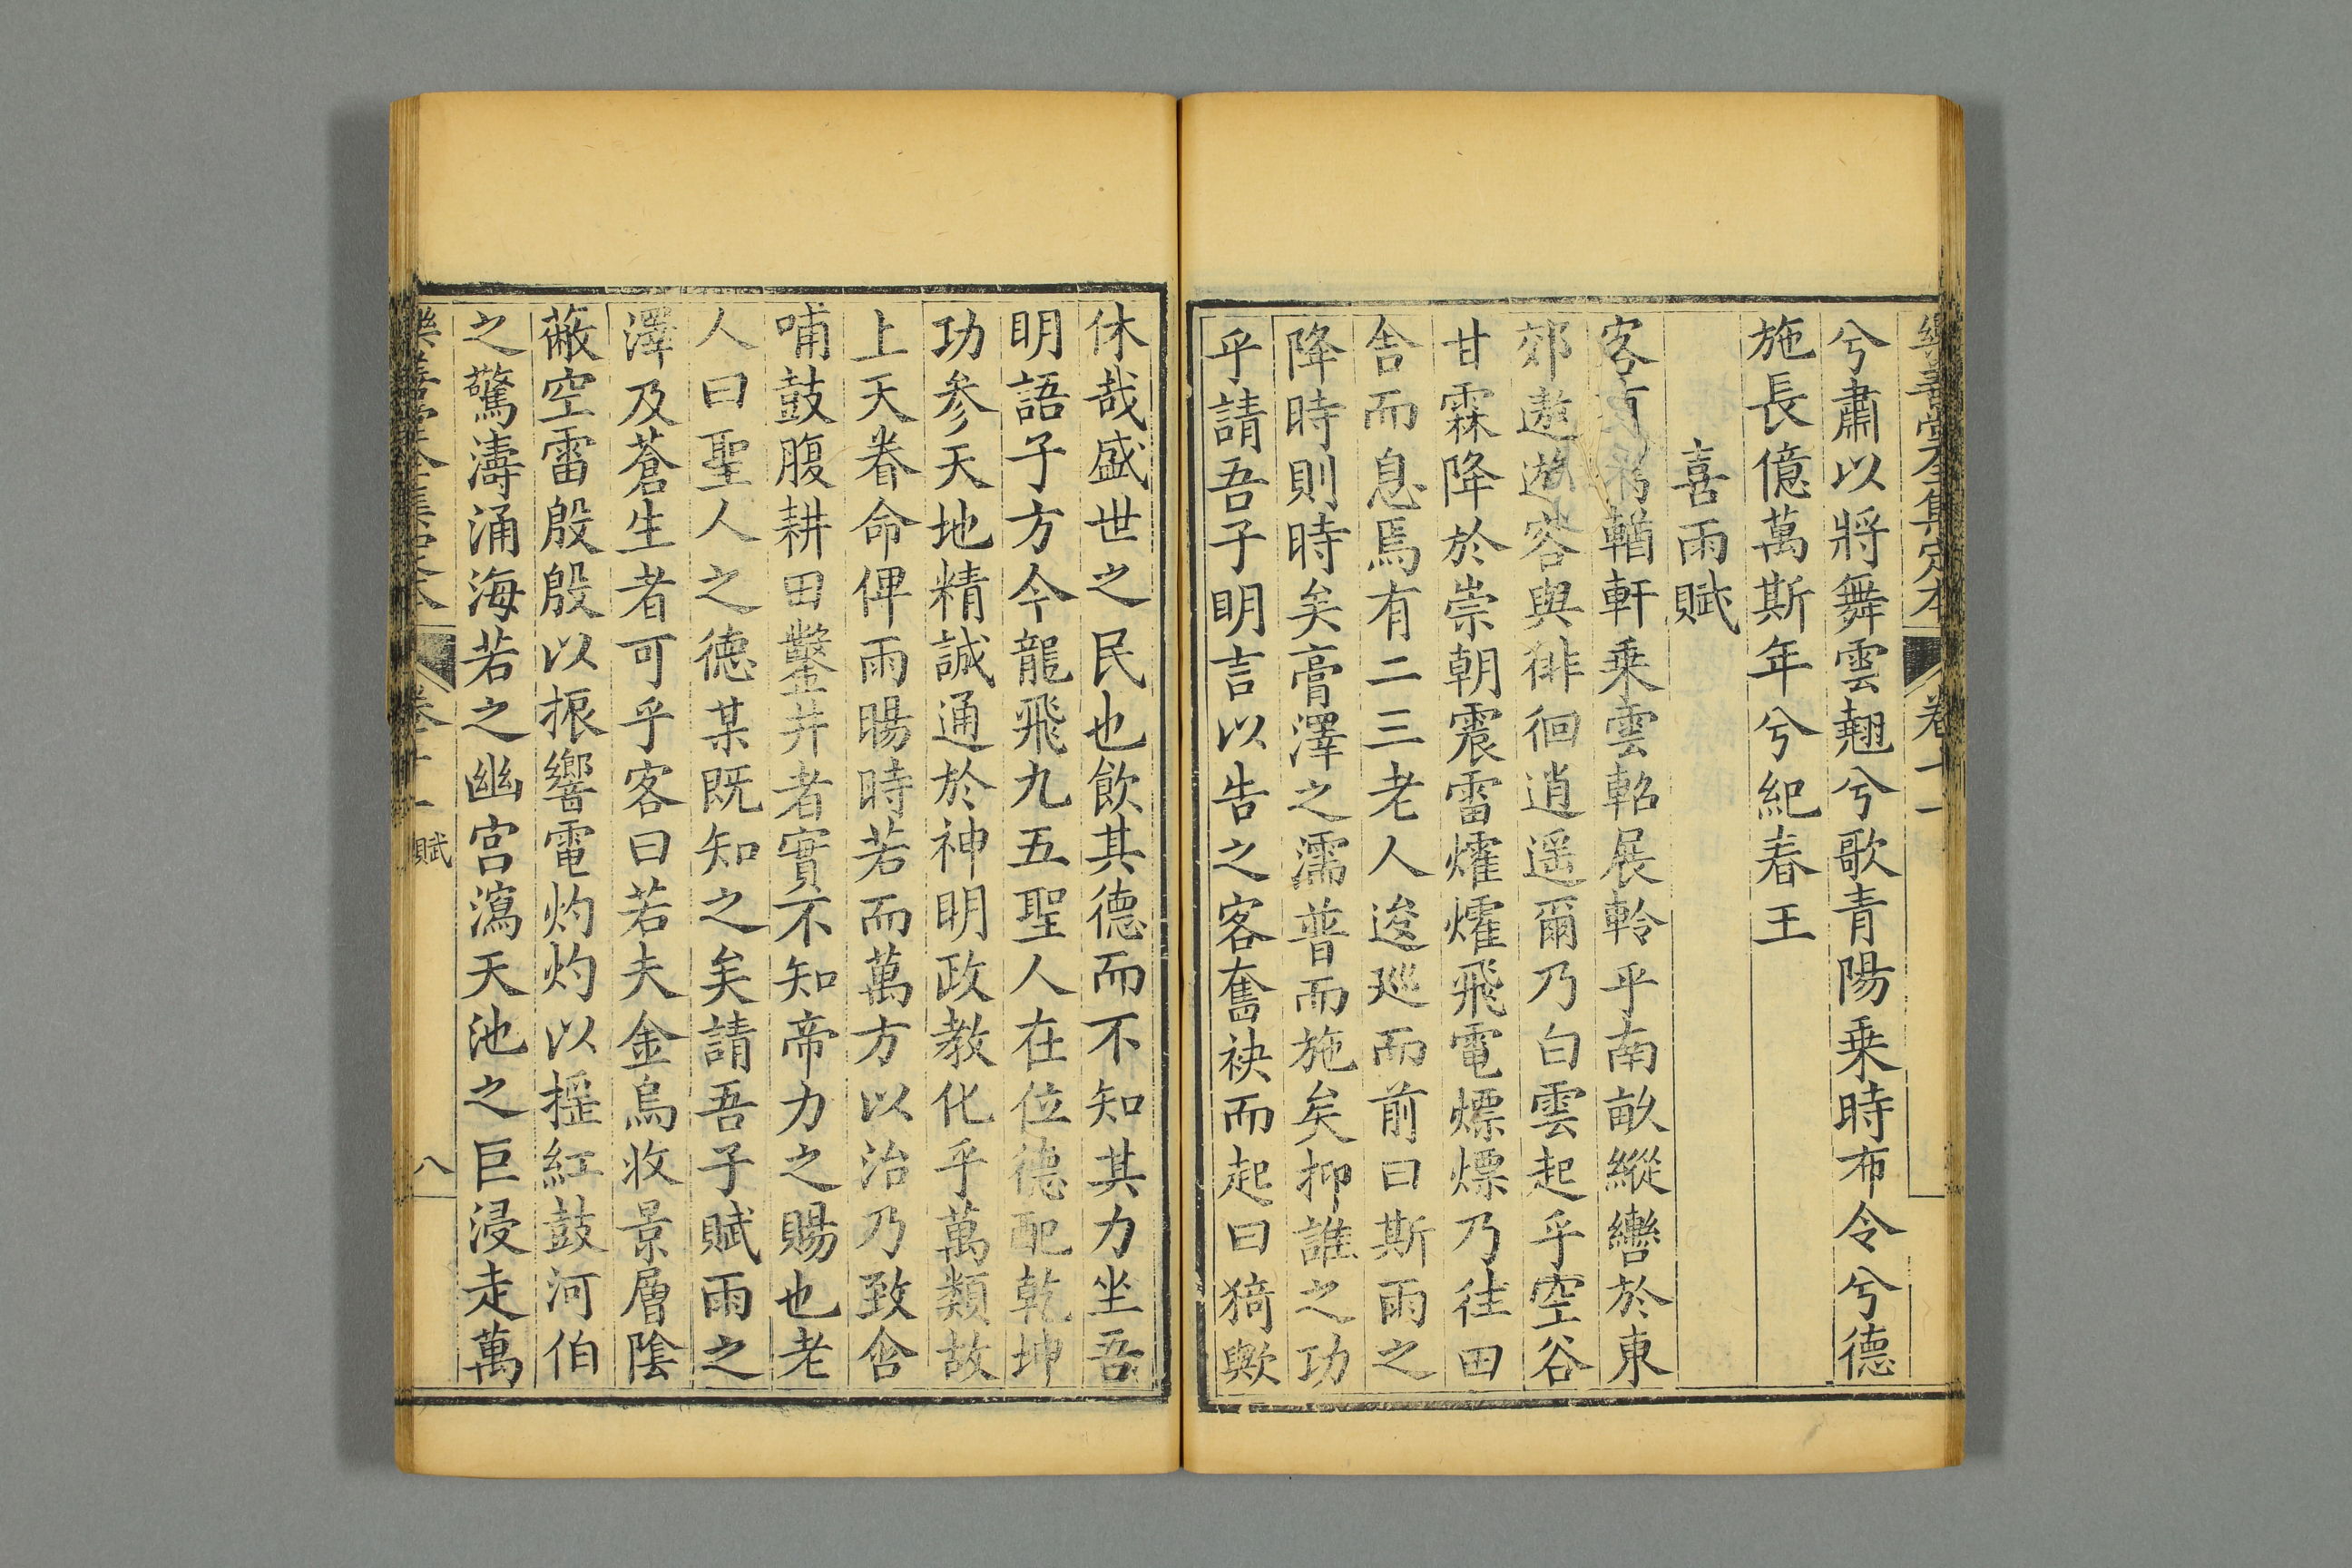 樂善堂全集定本 卷十一
兮肅以將舞雲翹兮歌青陽乗時布令兮德
施長億萬斯年兮紀春王
喜雨賦
客有輶軒乗雲軺展軨乎南畝縱轡於東
郊遨遊容與徘徊逍遥爾乃白雲起乎空谷
甘霖降於崇朝震雷爠爠飛電熛熛乃徃田
舍而息焉有二三老人逡廵而前曰斯雨之
降時則時矣膏澤之濡普而施矣抑誰之功
乎請吾子明言以告之客奮袂而起曰猗歟
休哉盛世之民也飲其德而不知其力坐吾
明語子方今龍飛九五聖人在位德配乾坤
功參天地精誠通於神明政教化乎萬類故
上天眷命俾雨暘時若而萬方以治乃致含
哺鼓腹耕田鑿井者實不知帝力之賜也老
人曰聖人之德某既知之矣請吾子賦雨之
澤及蒼生者可乎客曰若夫金烏收景層陰
蔽空雷殷殷以振響電灼灼以摇紅鼓河伯
之驚濤涌海若之幽宫瀉天池之巨浸走萬
樂善堂全集定本 卷十一 賦 八